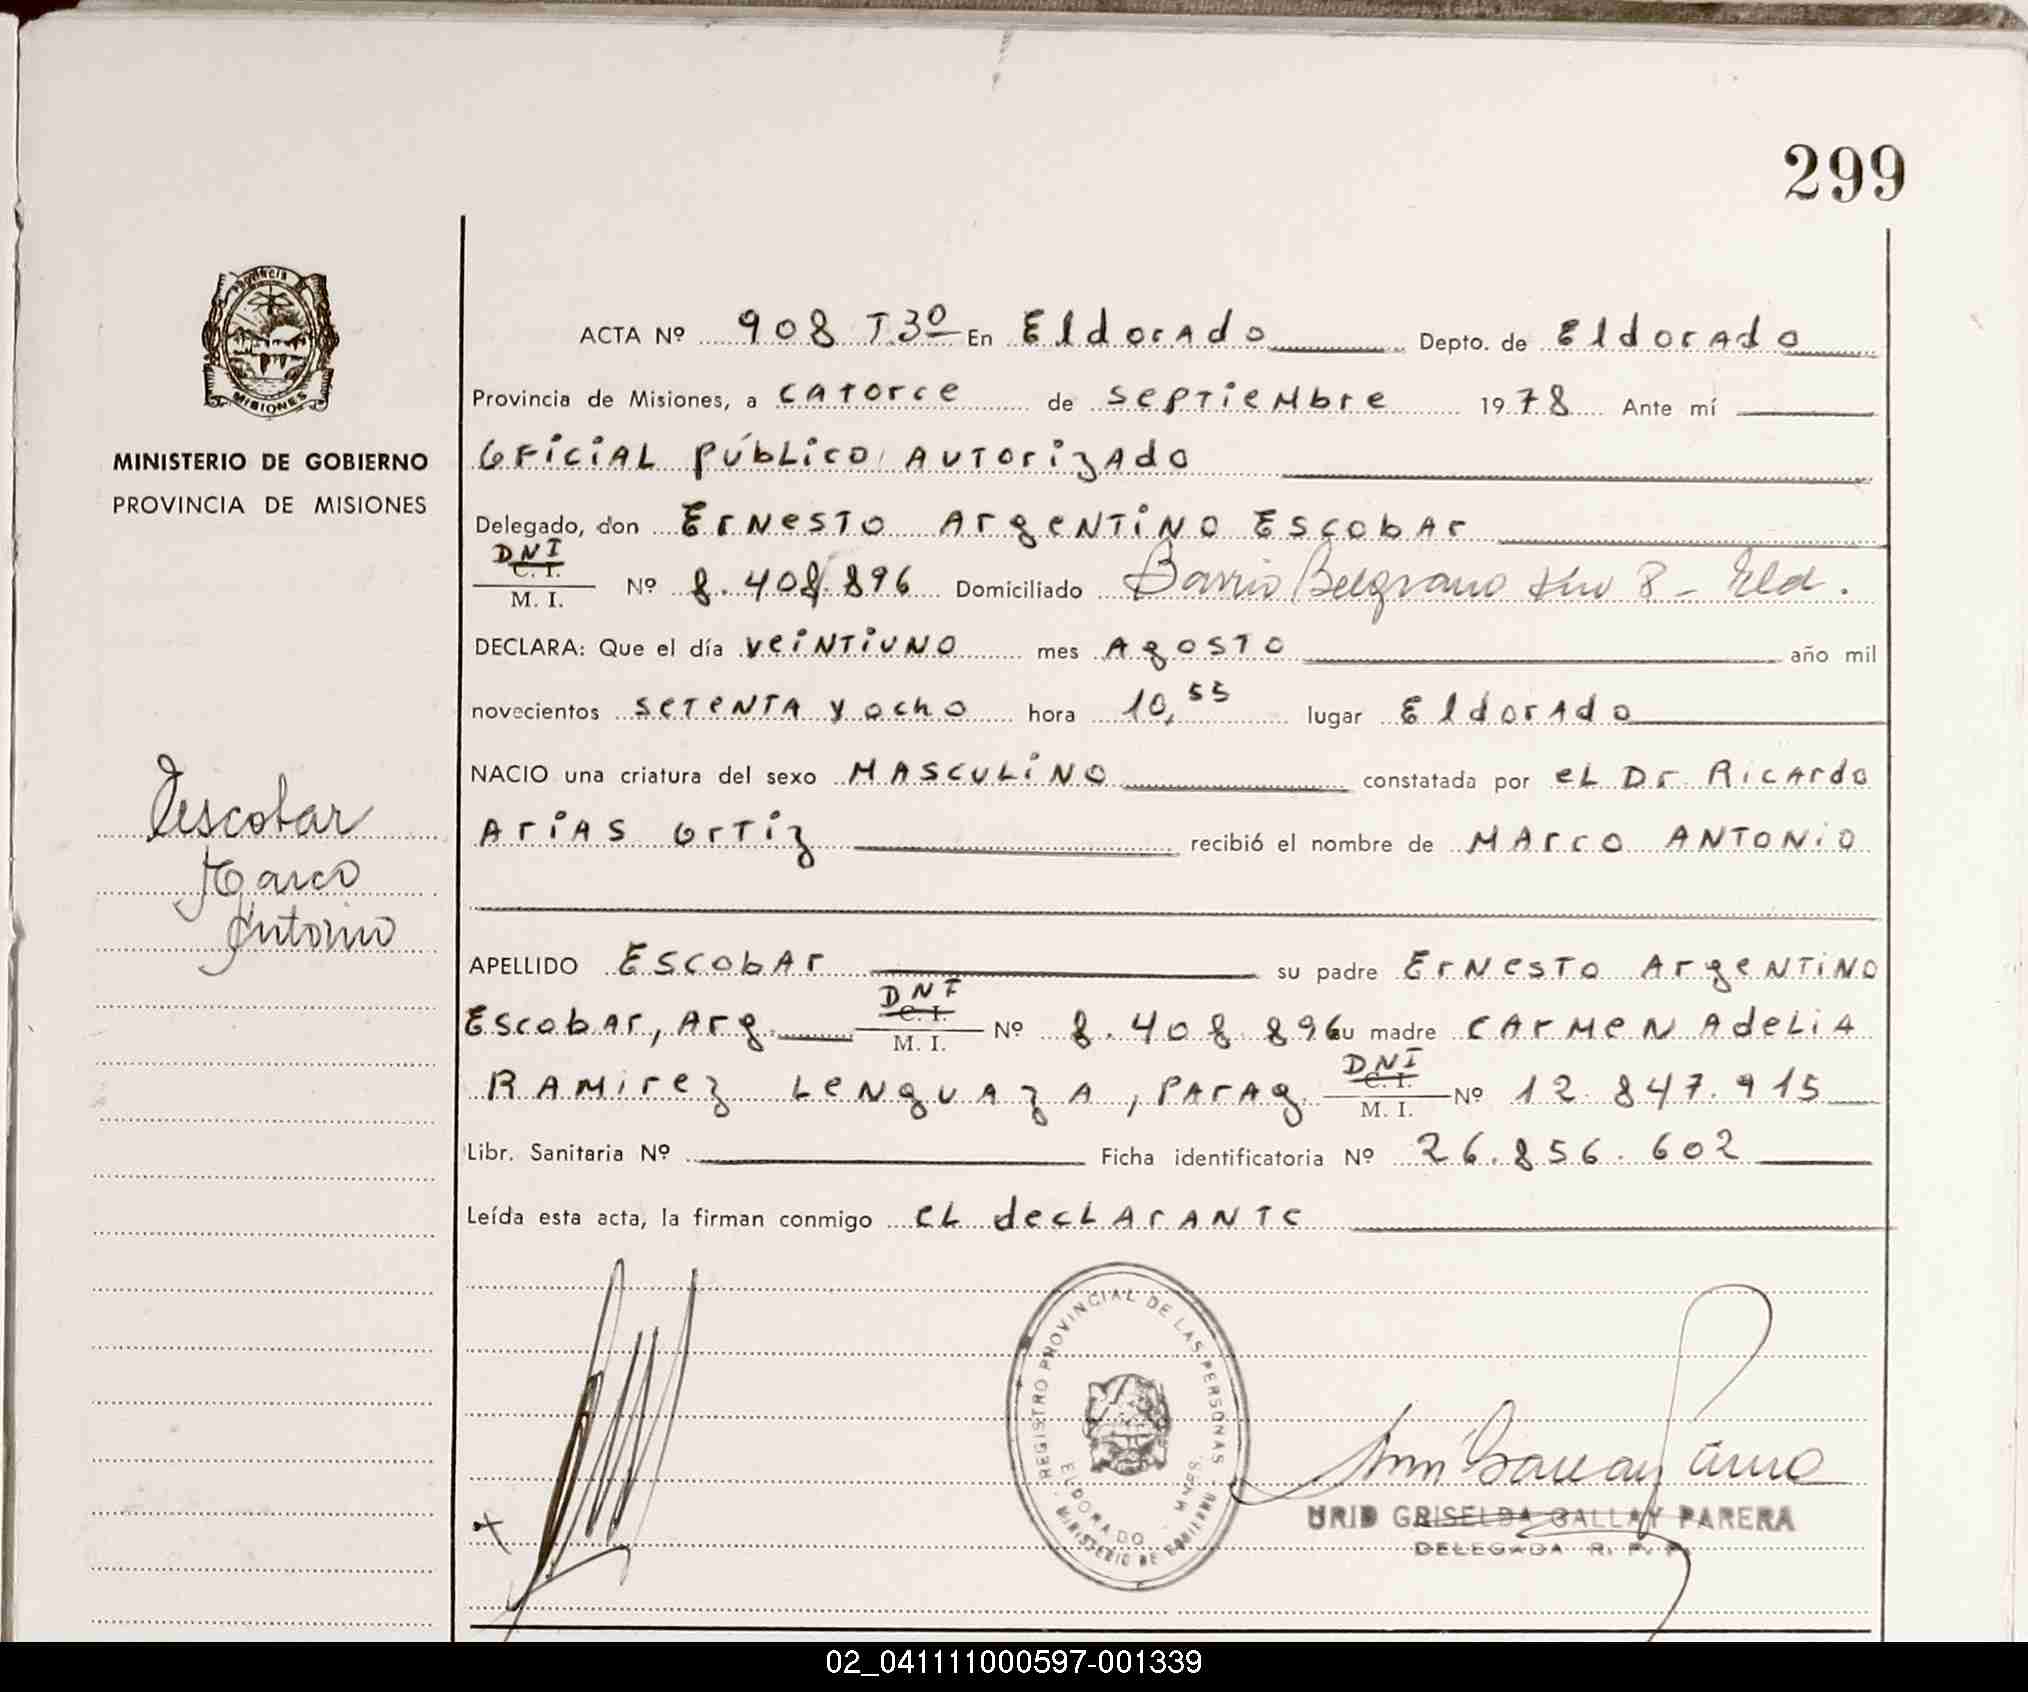 299
Provincia
MISIONES
MINISTERIO DE GOBIERNO
PROVINCIA DE MISIONES
Escobar
Marco
Antonio
ACTA Nº 908 T.3º En Eldorado Depto. de Eldorado
Provincia de Misiones, a catorce de septiembre 1978 Ante mí
Oficial público autorizado
Delegado, don Ernesto Argentino Escobar
DNI
C. I.
M. I. Nº 8.408.896 Domiciliado Barrio Belgrano Km 8 - Eld.
DECLARA: Que el día veintiuno mes Agosto año mil
novecientos setenta y ocho hora 10,55 lugar Eldorado
NACIO una criatura del sexo MASCULINO constatada por el Dr. Ricardo
Arias Ortiz recibió el nombre de MARCO ANTONIO
APELLIDO Escobar su padre Ernesto Argentino
DNI
C. I.
Escobar, Arg. M. I. Nº 8.408.896 su madre Carmen Adelia
DNI
C. I.
Ramirez Lenguaza, Parag. M. I. Nº 12.847.915
Libr. Sanitaria Nº Ficha identificatoria Nº 26.856.602
Leída esta acta, la firman conmigo el declarante
REGISTRO PROVINCIAL DE LAS PERSONAS
ELDORADO - MNES.
MINISTERIO DE GOBIERNO
URID GRISELDA GALLAY PARERA
DELEGADA R. P. P.
02_041111000597-001339